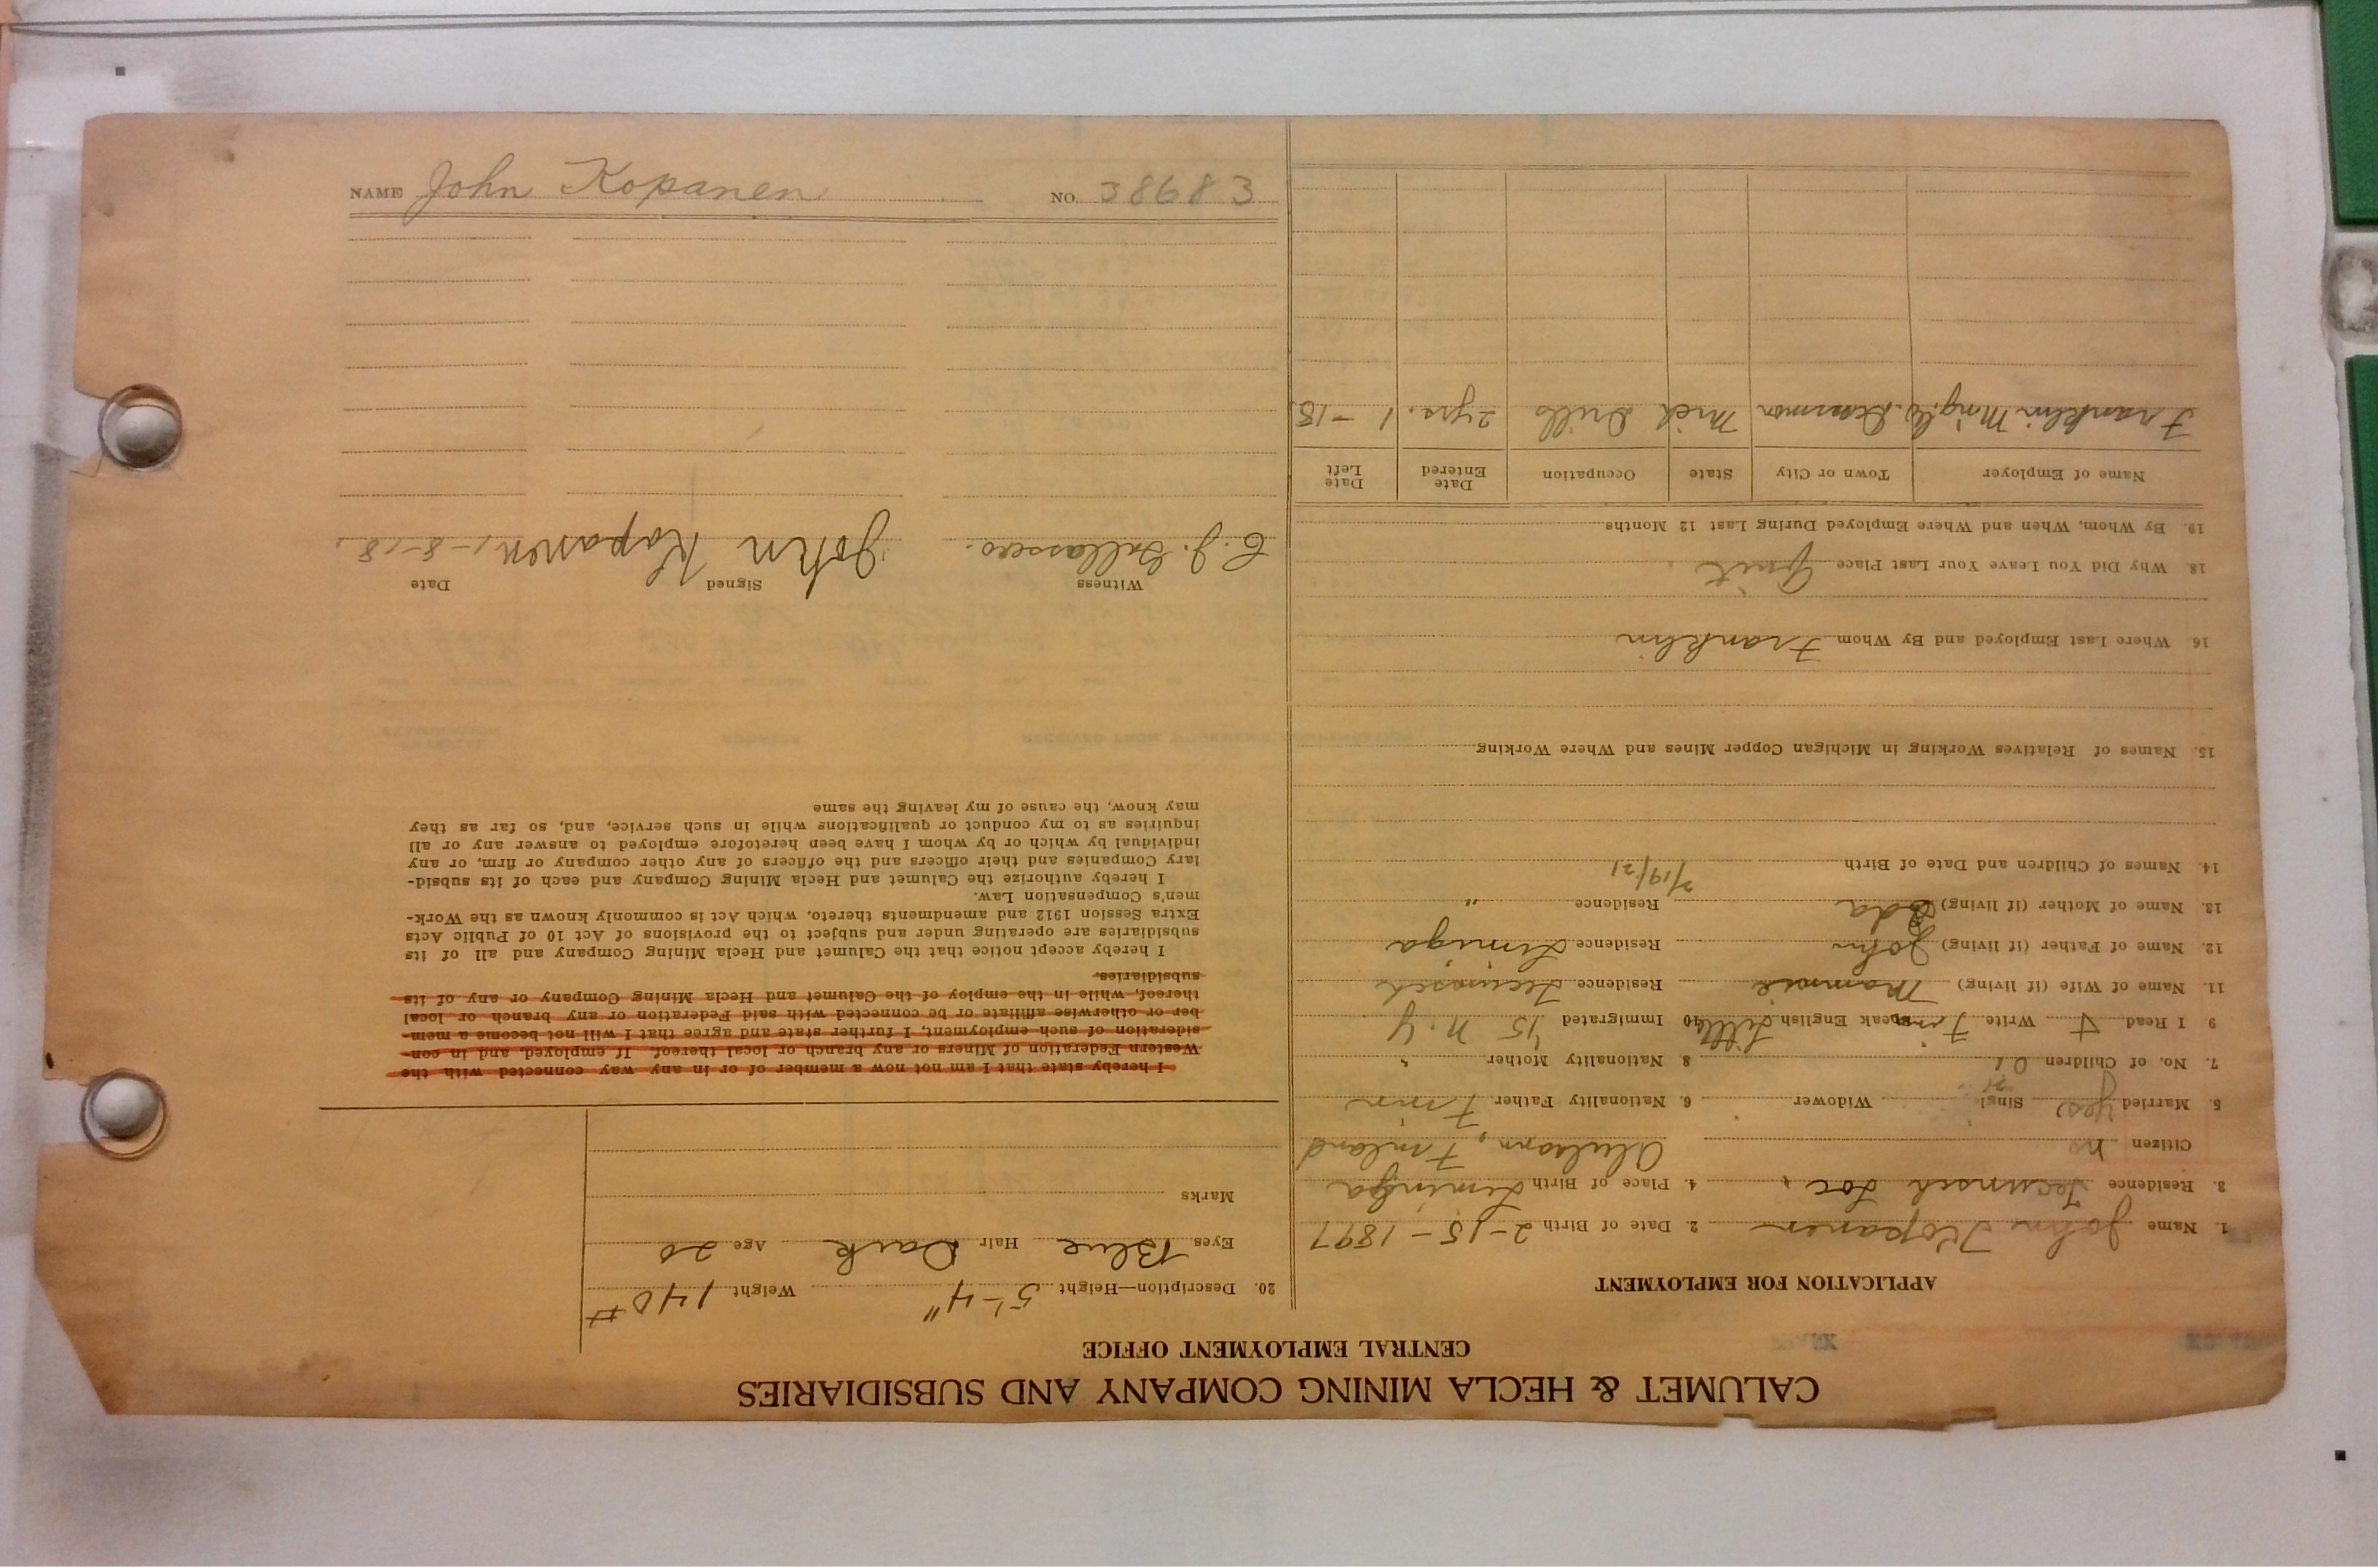 CALUMET & HECLA MINING COMPANY AND SUBSIDIARIES
CENTRAL EMPLOYMENT OFFICE
APPLICATION FOR EMPLOYMENT
1. Name John Kopanen 2. Date of Birth 2-15-1897
3. Residence Tecumseh Loc. 4. Place of Birth Liminga
Citizen no Finland
5. Married Yes Singl Widower 6. Nationality Father Finn
7. No. of Children 8 Nationality Mother "
9 I Read F Write Finn Speak English Little 10 Immigrated '15 N.Y
11. Name of Wife (if living) Residence Tecumseh
12. Name of Father (if living) John Residence Liminga
13. Name of Mother (if living) Residence "
14. Names of Children and Date of Birth 2/19/21
15. Names of Relatives Working in Michigan Copper Mines and Where Working
16 Where Last Employed and By Whom Franklin
18. Why Did You Leave Your Last Place Quit
19. By Whom, When and Where Employed During Last 12 Months
Name of Employer Town or City State Occupation Date Entered Date Left
Franklin Min'g Co. Mich Drills 2 yrs. 1-18
20. Description—Height 5'-4" Weight 140#
Eyes Blue Hair Dark Age 20
Marks
I hereby state that I am not now a member of or in any way connected with the
Western Federation of Miners or any branch or local thereof. If employed, and in con-
sideration of such employment, I further state and agree that I will not become a mem-
ber or otherwise affiliate or be connected with said Federation or any branch or local
thereof, while in the employ of the Calumet and Hecla Mining Company or any of its
subsidiaries.
I hereby accept notice that the Calumet and Hecla Mining Company and all of its
subsidiaries are operating under and subject to the provisions of Act 10 of Public Acts
Extra Session 1912 and amendments thereto, which Act is commonly known as the Work-
men's Compensation Law.
I hereby authorize the Calumet and Hecla Mining Company and each of its subsid-
iary Companies and their officers and the officers of any other company or firm, or any
individual by which or by whom I have been heretofore employed to answer any or all
inquiries as to my conduct or qualifications while in such service, and, so far as they
may know, the cause of my leaving the same
Witness Signed Date
John Kopanen 1-8-18.
NAME John Kopanen NO. 38683